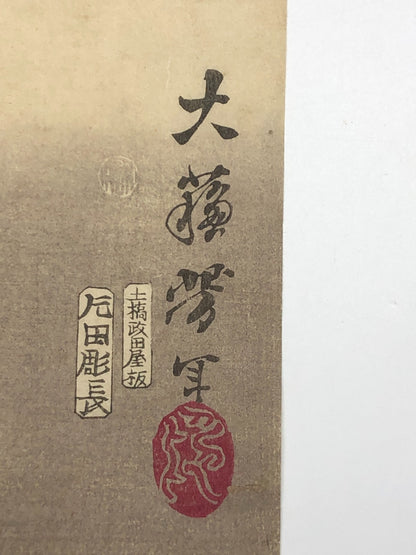 大蘓芳年
土橋政田屋板
片田彫長